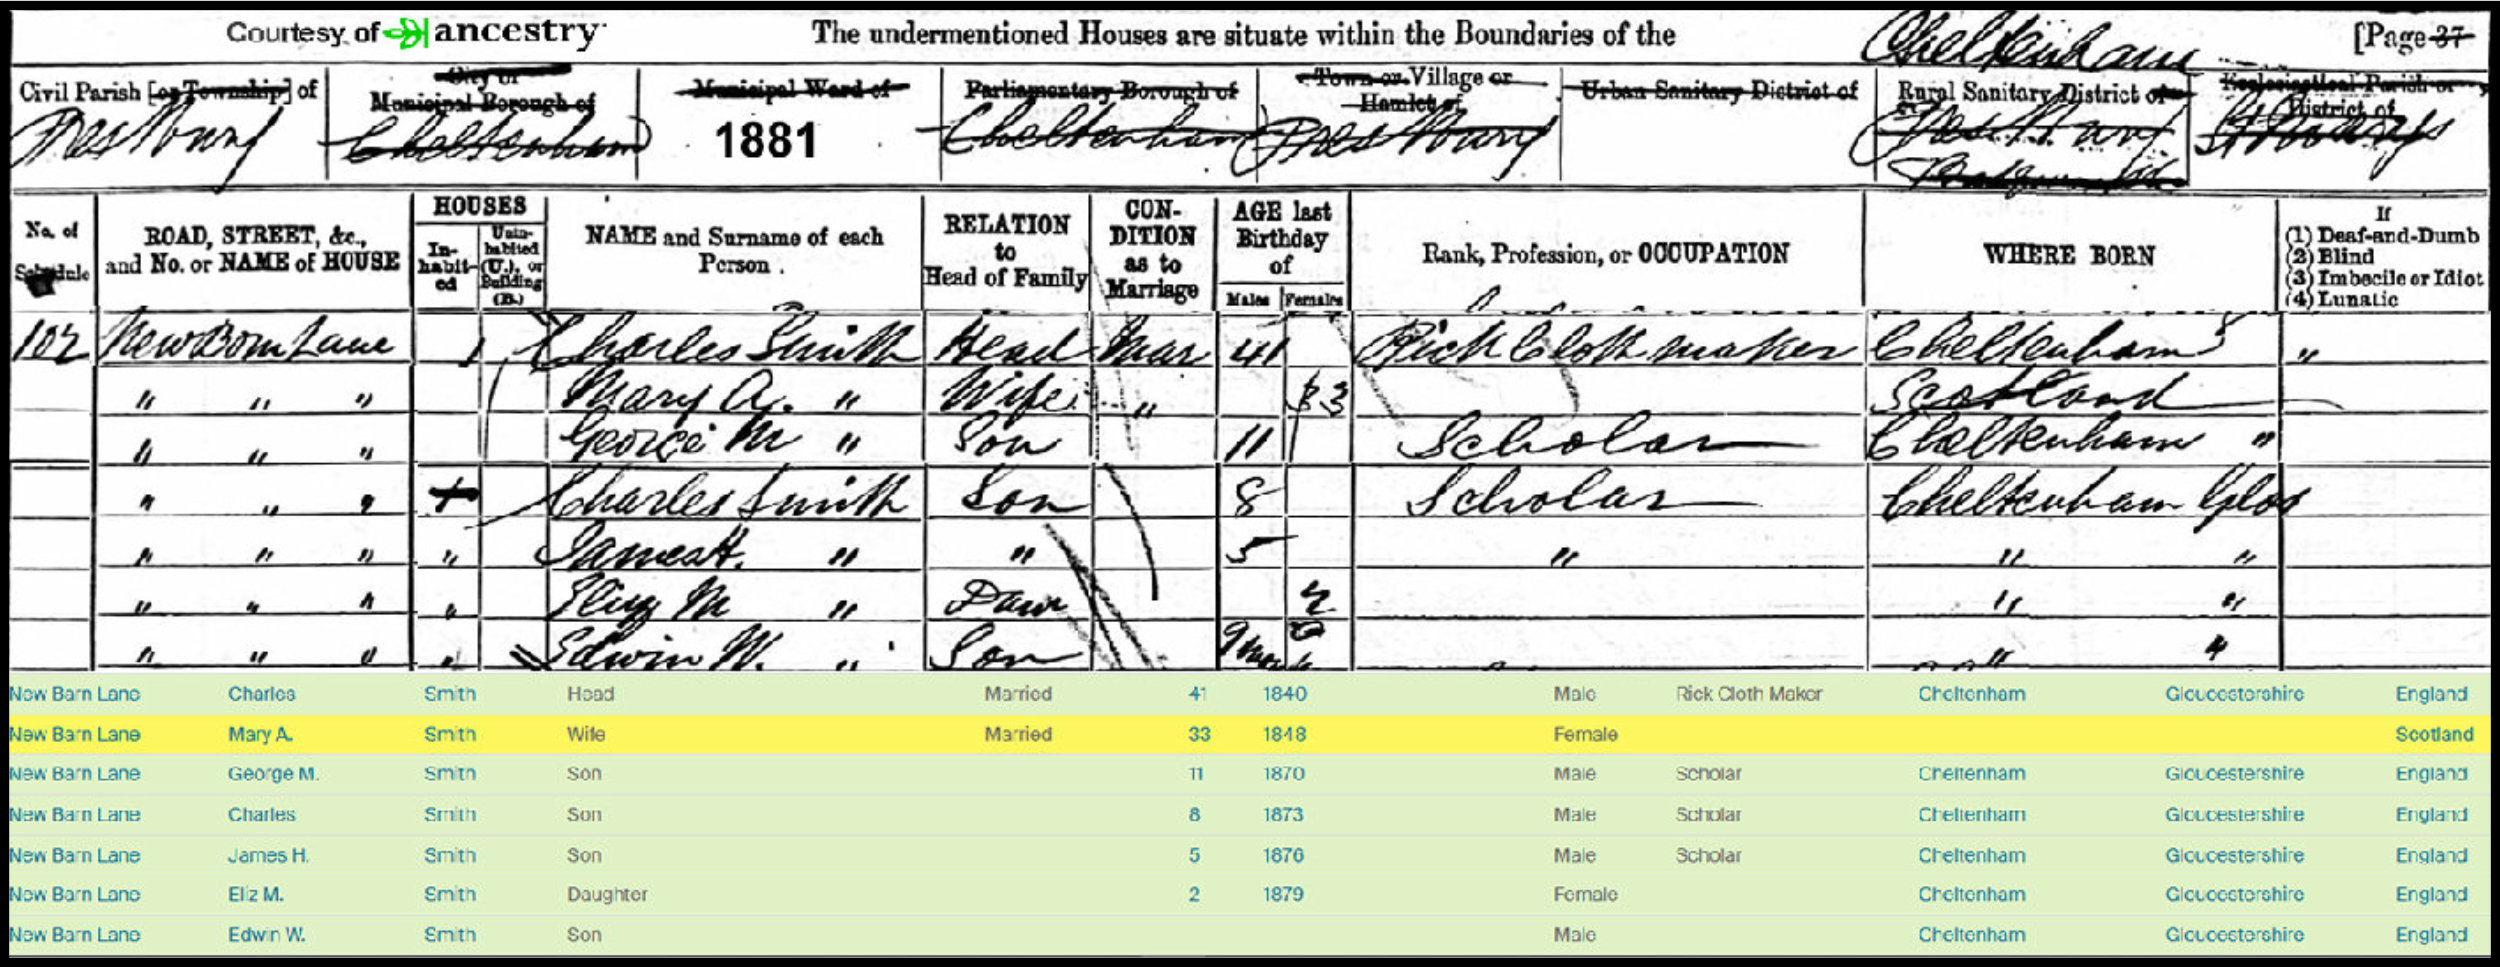 Courtesy of ancestry The undermentioned Houses are situate within the Boundaries of the Cheltenham [Page 37
Civil Parish [or Township] of City or Municipal Borough of Municipal Ward of Parliamentary Borough of Town or Village or Hamlet of Urban Sanitary District of Rural Sanitary District of Ecclesiastical Parish or District of
Prestbury Cheltenham 1881 Cheltenham Prestbury Prestbury St Marys
No. of Schedule ROAD, STREET, &c., and No. or NAME of HOUSE HOUSES In-habit-ed Unin-habited (U.), or Building (B.) NAME and Surname of each Person. RELATION to Head of Family CON-DITION as to Marriage AGE last Birthday of Males Females Rank, Profession, or OCCUPATION WHERE BORN If (1) Deaf-and-Dumb (2) Blind (3) Imbecile or Idiot (4) Lunatic
102 New Barn Lane 1 Charles Smith Head Mar 41 Rick Cloth maker Cheltenham "
" " " Mary A. " Wife " 33 Scotland
" " " George M " Son 11 Scholar Cheltenham "
" " " Charles Smith Son 8 Scholar Cheltenham Glos
" " " " James H. " " 5 " " "
" " " " Eliz M " Daur 2 " "
" " " " Edwin W. " Son " "
New Barn Lane Charles Smith Head Married 41 1840 Male Rick Cloth Maker Cheltenham Gloucestershire England
New Barn Lane Mary A. Smith Wife Married 33 1848 Female Scotland
New Barn Lane George M. Smith Son 11 1870 Male Scholar Cheltenham Gloucestershire England
New Barn Lane Charles Smith Son 8 1873 Male Scholar Cheltenham Gloucestershire England
New Barn Lane James H. Smith Son 5 1876 Male Scholar Cheltenham Gloucestershire England
New Barn Lane Eliz M. Smith Daughter 2 1879 Female Cheltenham Gloucestershire England
New Barn Lane Edwin W. Smith Son Male Cheltenham Gloucestershire England